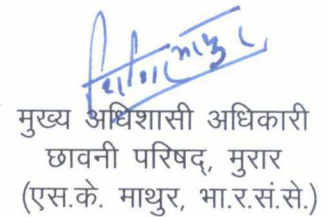 मुख्य अधिशासी अधिकारी
छावनी परिषद्, मुरार
(एस.के. माथुर, भा.र.सं.से.)